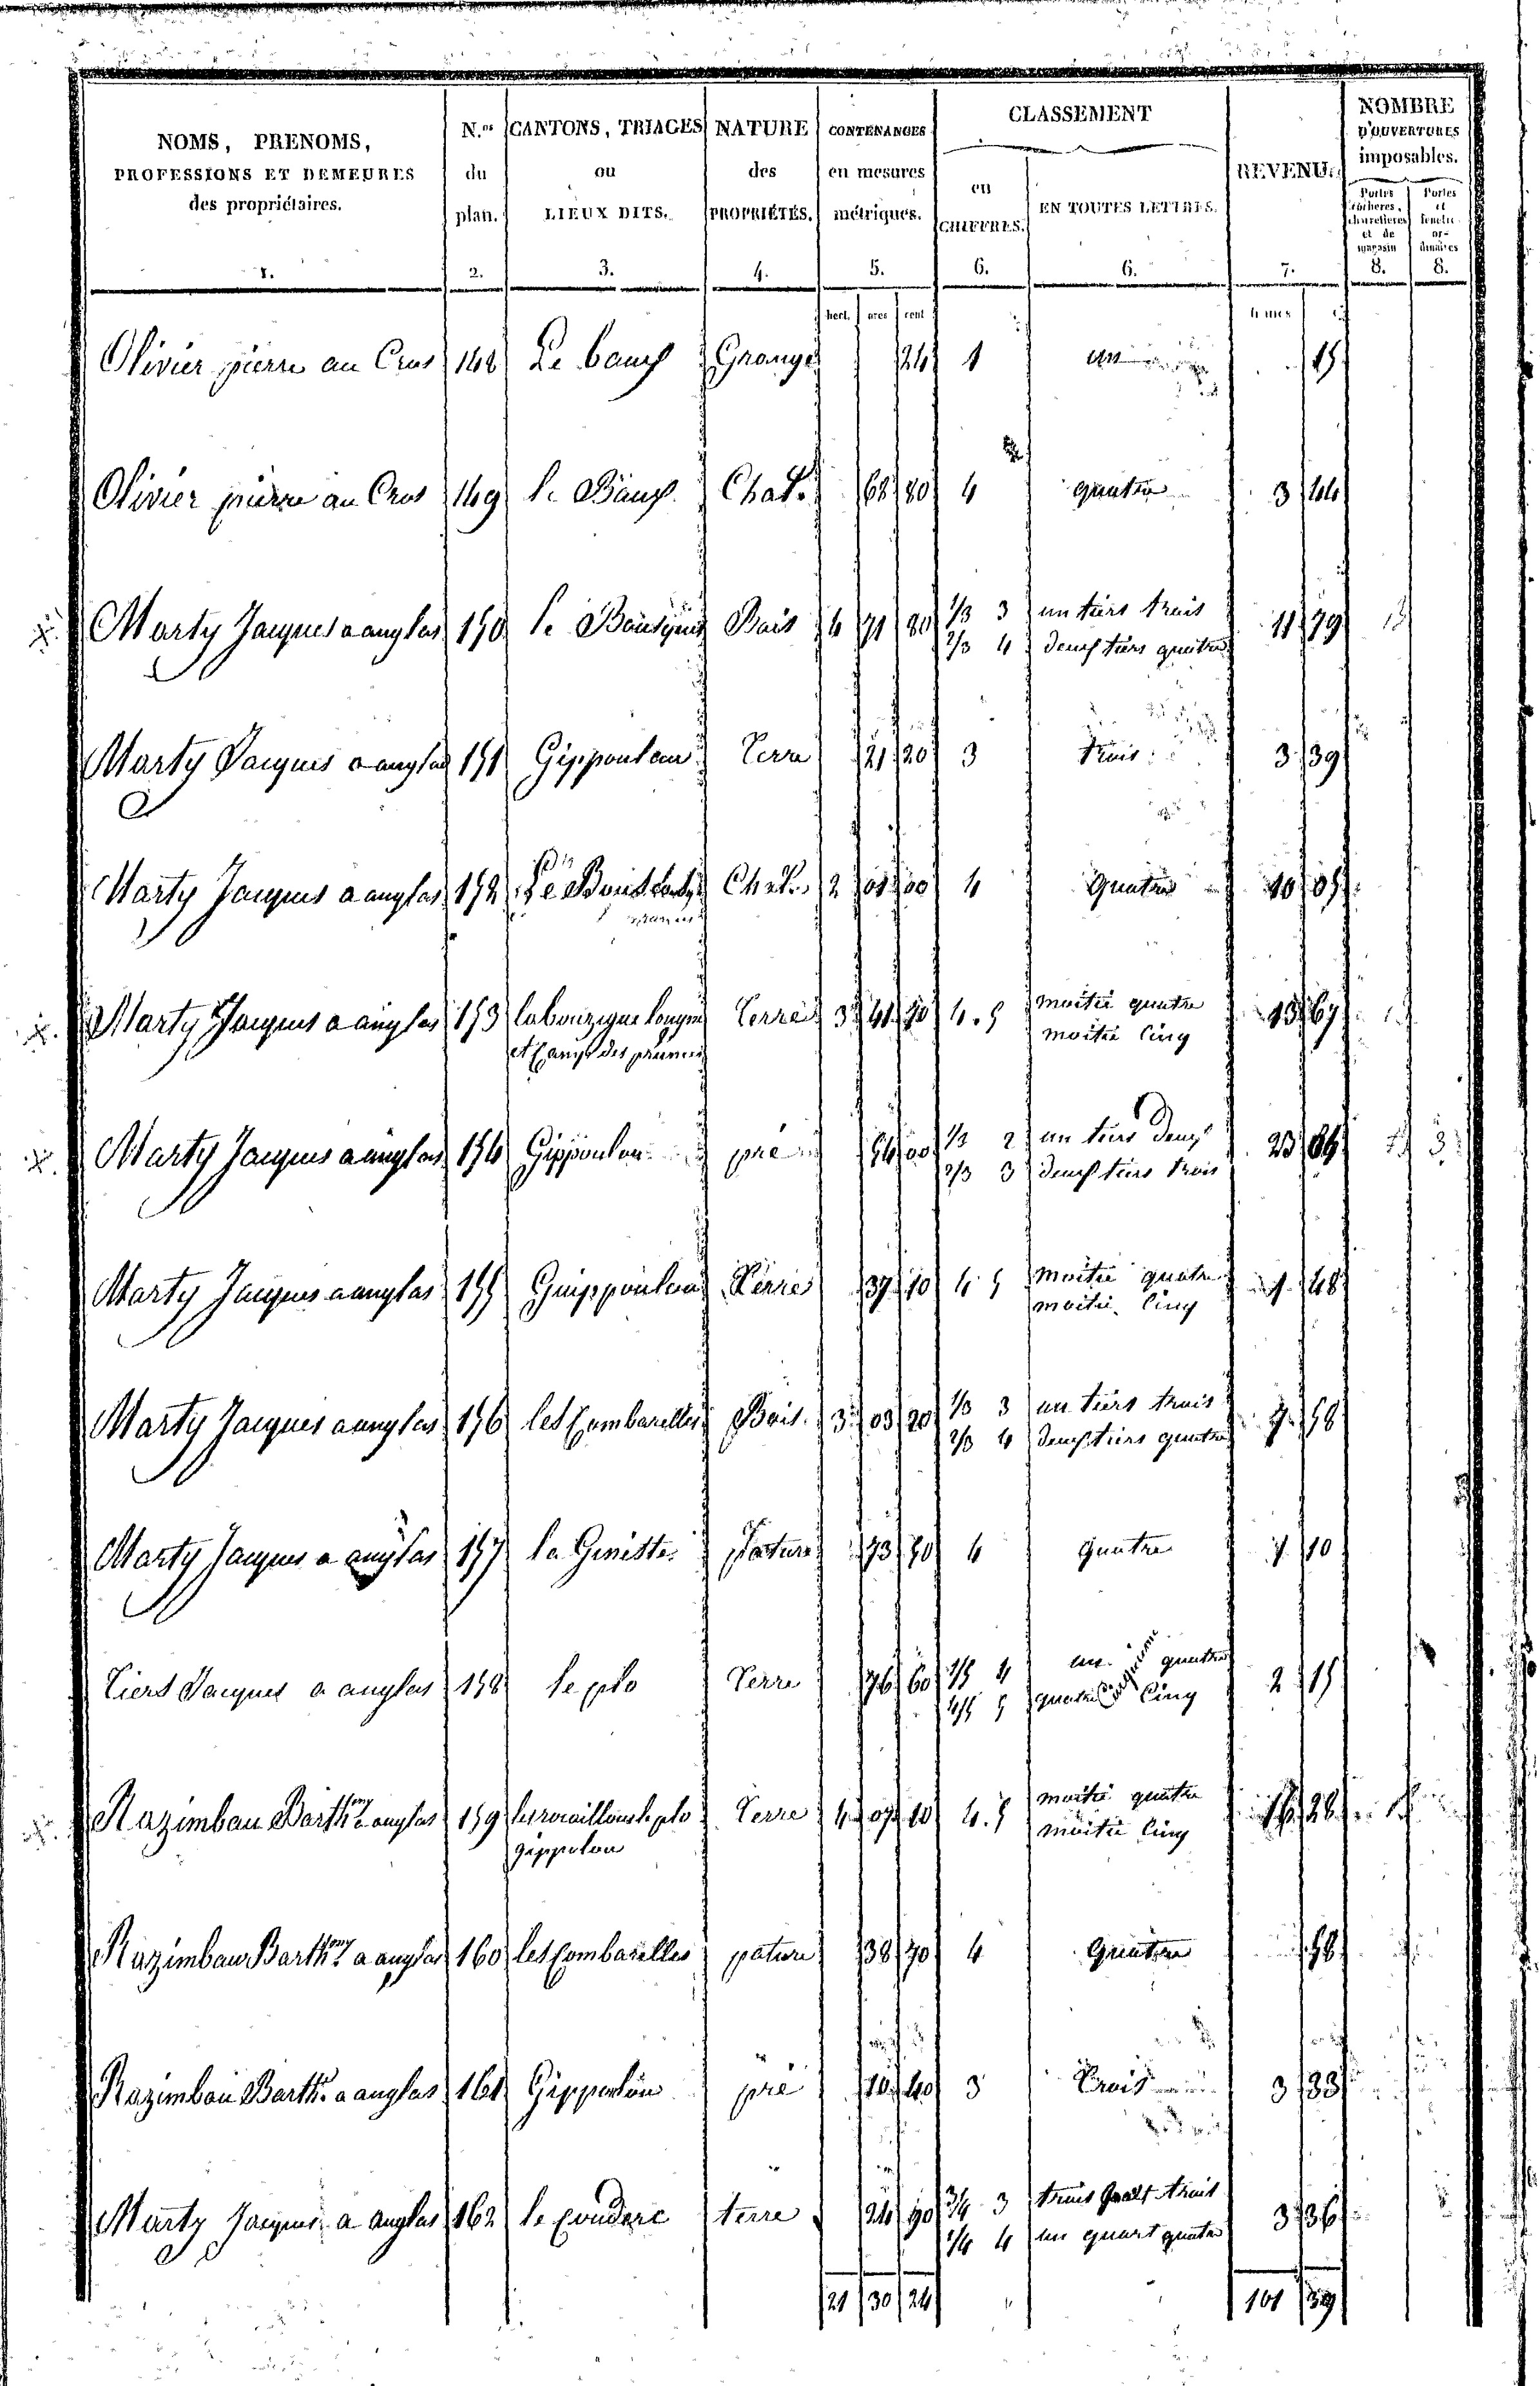 NOMS, PRENOMS, PROFESSIONS ET DEMEURES des propriétaires. 1.
N.os du plan. 2.
CANTONS, TRIAGES ou LIEUX DITS. 3.
NATURE des PROPRIÉTÉS. 4.
CONTENANCES en mesures métriques. 5.
CLASSEMENT
en CHIFFRES. 6.
EN TOUTES LETTRES. 6.
REVENU. 7.
NOMBRE D'OUVERTURES imposables.
Portes cochères, charretières et de magasin 8.
Portes et fenêtr. ordinaires 8.
hect. ares cent
Olivier pierre au Crus 148 Le baux Grange 24 1 un 15
Olivier pierre au Crus 149 le Baux Chat. 68 80 4 quatre 3 44
Marty Jacques a anglas 150 le Bois 4 71 80 1/3 3 un tiers trois 11 79
2/3 4 deux tiers quatre
Marty Jacques a anglas 151 Gippoulou Terre 21 20 3 trois 3 39
Marty Jacques a anglas 152 Le Chat. 2 01 00 4 Quatre 10 05
Marty Jacques a anglas 153 labouzigue longue Terre 3 41 4.5 moitié quatre 13 67
et des moitié cinq
Marty Jacques a anglas 154 Gippoulou pré 54 00 1/3 2 un tiers deux 23
2/3 3 deux tiers trois
Marty Jacques a anglas 155 Guippoulou Terre 37 10 4 5 moitié quatre 1 48
moitié cinq
Marty Jacques a anglas 156 les Combarelles Bois 3 03 20 1/3 3 un tiers trois 7 58
2/3 4 deux tiers quatre
Marty Jacques a anglas 157 la Gineste Pature 73 50 4 quatre 1 10
Tiers Jacques a anglas 158 le plo Terre 76 60 1/5 4 un quatre 2 15
4/5 5 quatre cinquieme cinq
Razimbau Barthmy a anglas 159 le plo Terre 4 07 10 4.5 moitié quatre 16 28
gippolou moitié cinq
Razimbau Barthmy a anglas 160 les Combarelles pature 38 70 4 Quatre 58
Razimbau Barth. a anglas 161 Gippoulou pré 10 40 3 Trois 3 33
Marty Jacques a anglas 162 le Couderc terre 24 90 3/4 3 trois quart trois 3 36
1/4 4 un quart quatre
21 30 24 101 39